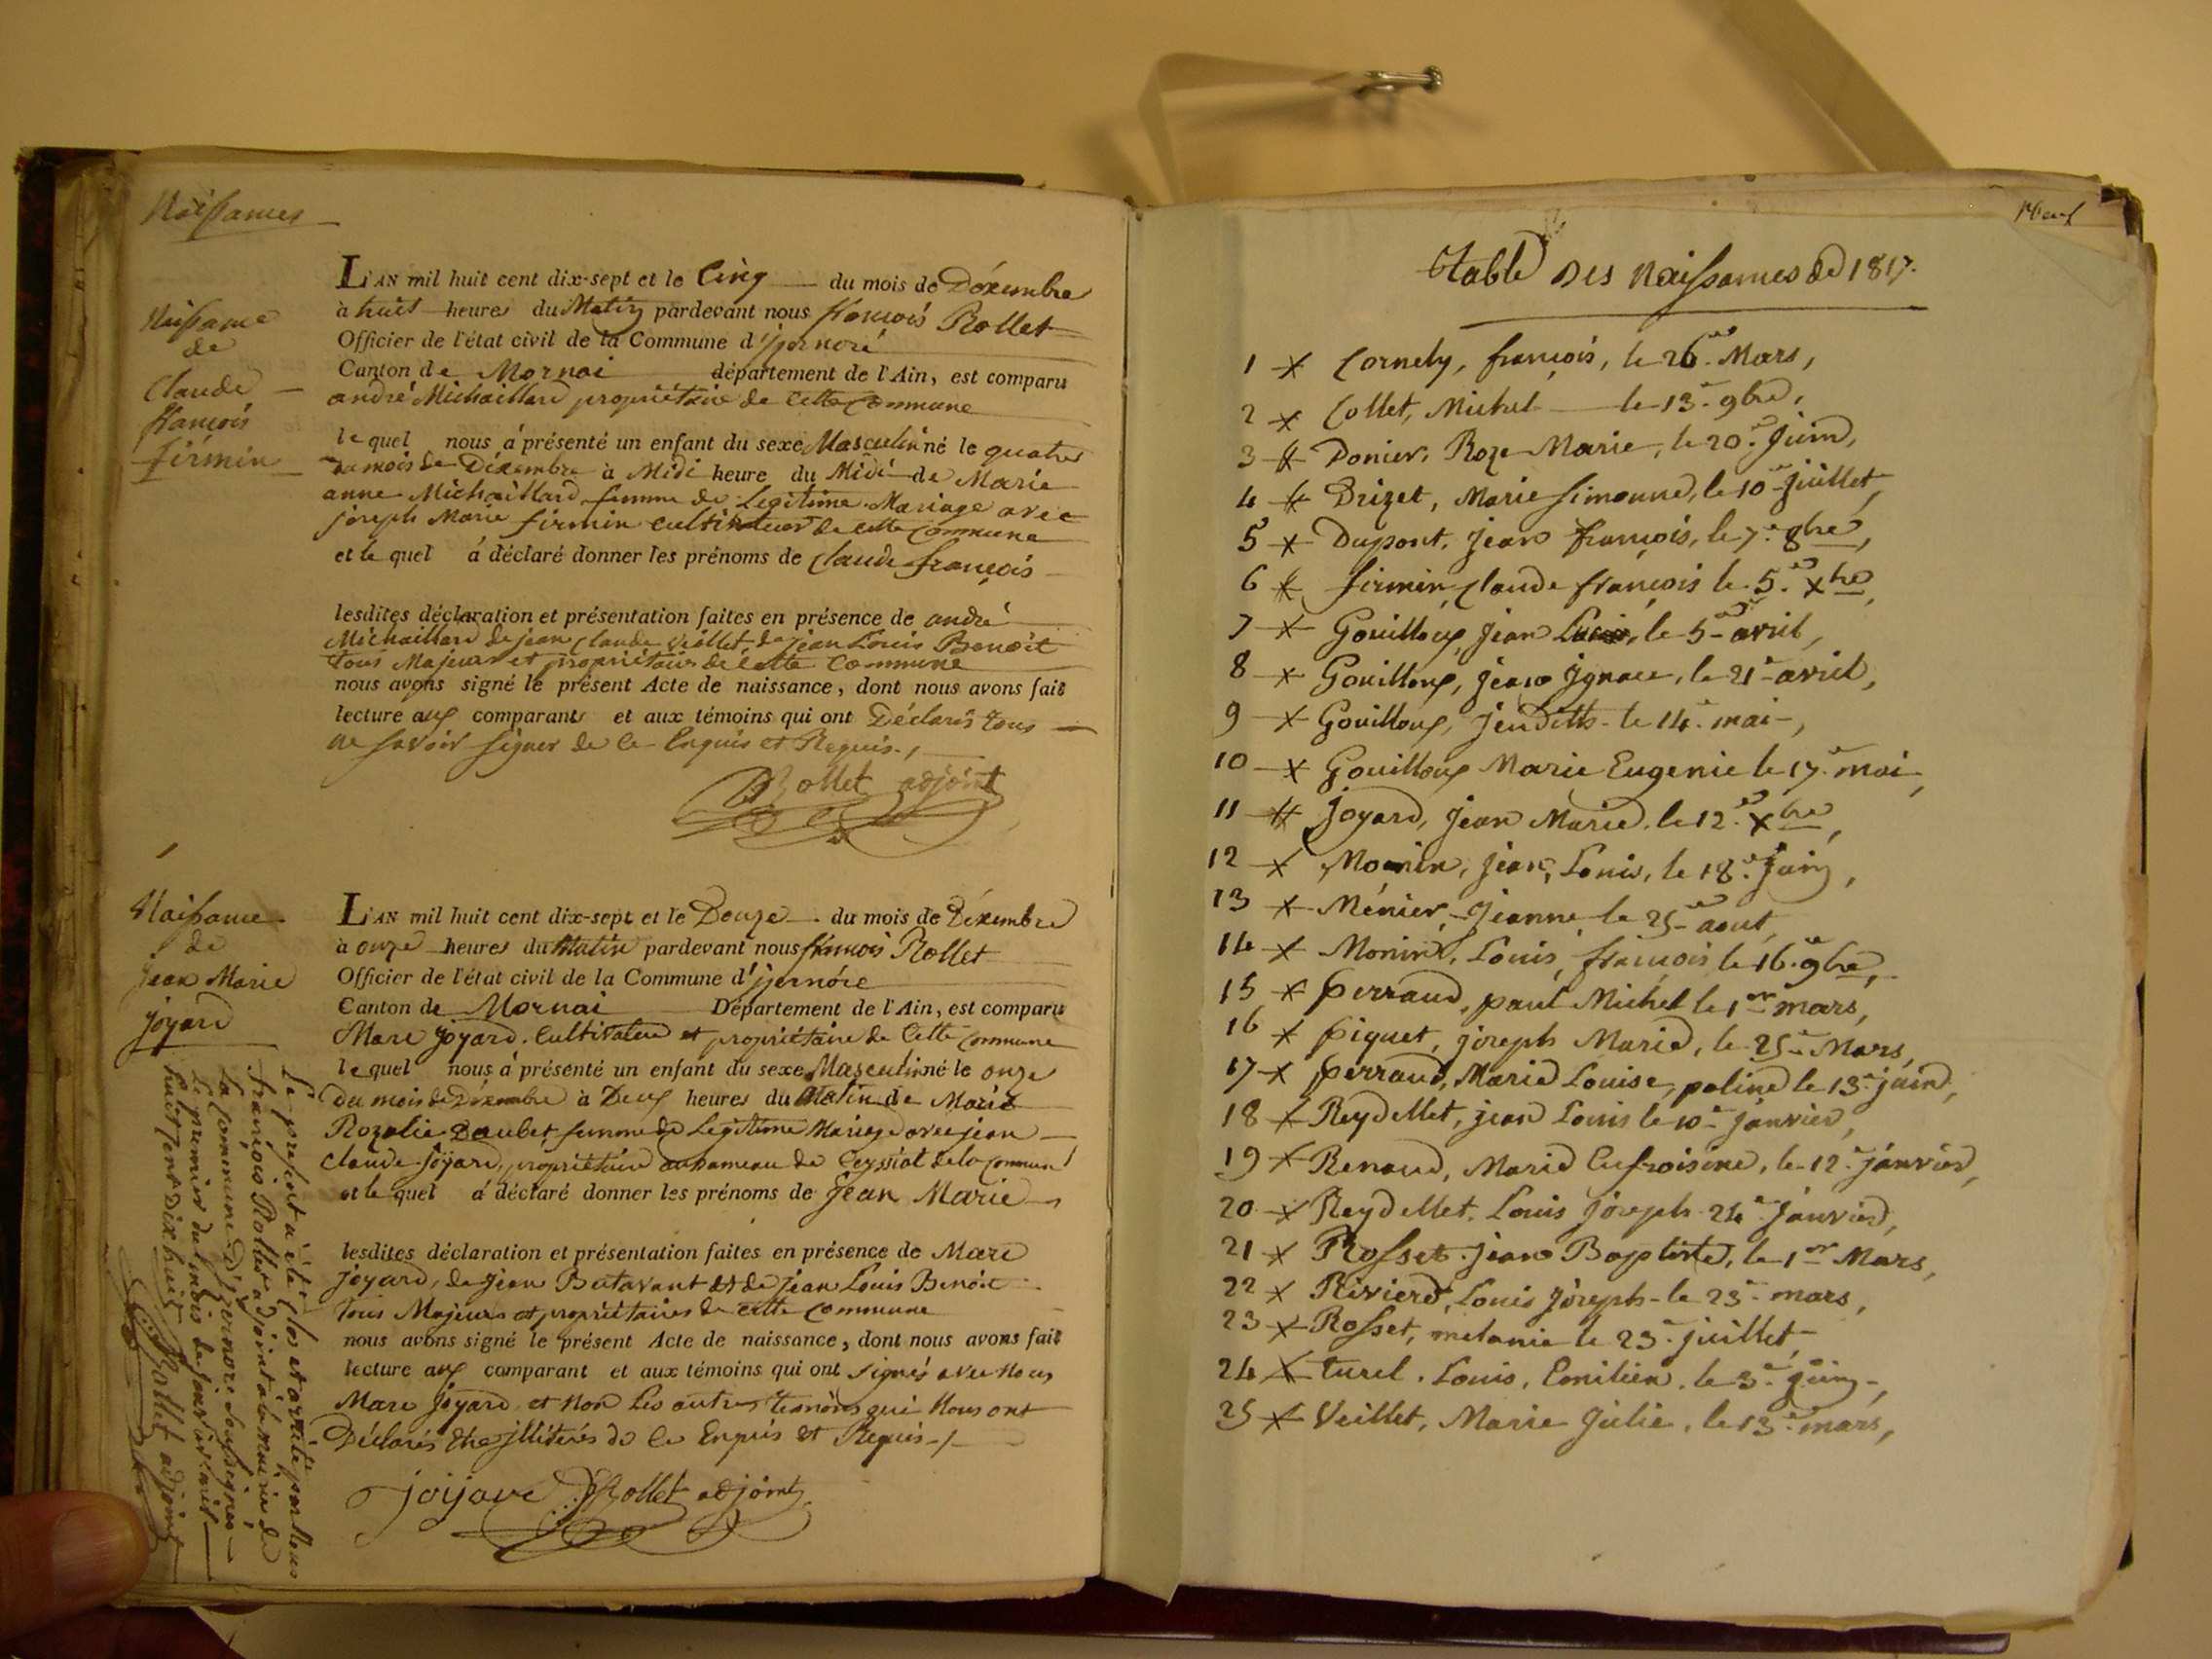 Naissances
Naissance
de
Claude
françois
firmin
L'AN mil huit cent dix-sept et le Cinq du mois de Décembre
à huit heures du Matin pardevant nous françois Rollet
Officier de l'état civil de la Commune d'yzernore
Canton de Mornai département de l'Ain, est comparu
andré Michaillard propriétaire de Cette Commune
lequel nous à présenté un enfant du sexe Masculin né le quatre
du mois de Décembre à Midi heure du Midi de Marie
anne Michaillard femme de Legitime Mariage avec
joseph Marie firmin cultivateur de cette Commune
et lequel á déclaré donner les prénoms de Claude françois
lesdites déclaration et présentation faites en présence de andré
Michaillard de jean Claude Veillet de jean Louis Benoit
tous Majeurs et propriétaires de Cette Commune
nous avons signé le présent Acte de naissance, dont nous avons fait
lecture aux comparants et aux témoins qui ont Déclarés tous
ne savoir signer de Ce Enquis et Requis./
Rollet adjoint
Naissance
de
jean Marie
joyard
L'AN mil huit cent dix-sept et le Douze du mois de Décembre
à onze heures du Matin pardevant nous françois Rollet
Officier de l'état civil de la Commune d'yzernore
Canton de Mornai Département de l'Ain, est comparu
Marc joyard Cultivateur et propriétaire de Cette Commune
lequel nous à présenté un enfant du sexe Masculin né le onze
du mois de Décembre à Deux heures du Matin de Marie
Rozalie Daubet femme de Legitime Mariage avec jean
Claude joyard, propriétaire au hameau de Ceyssiat de la Commune
et lequel á déclaré donner les prénoms de jean Marie
lesdites déclaration et présentation faites en présence de Marc
joyard, de jean Batavant et de jean Louis Benoit
tous Majeurs et propriétaires de cette Commune
nous avons signé le présent Acte de naissance, dont nous avons fait
lecture aux comparant et aux témoins qui ont signés avec nous
Marc joyard et non Les autres témoins qui Nous ont
Déclarés être jllitérés de Ce Enquis et Requis./
joijard Rollet adjoint
Le present a été Clos et arrêté par Nous
françois Rollet adjoint à la mairie de
La Commune d'yzernore soussigné
Le premier du mois de janvier mil
huit Cent Dix huit
Rollet adjoint
Neuf
table Des Naissances de 1817.
1 Cornely, françois, le 26e Mars,
2 Collet, Michel le 13e 9bre,
3 Donier, Roze Marie, le 20e Juin,
4 Drizet, Marie simonne, le 10e juillet,
5 Dupont, jean françois, le 7e 8bre,
6 firmin Claude françois le 5e Xbre,
7 Gouilloux, jean Louis, le 5e avril,
8 Gouilloux, jean jgnace, le 21e avril,
9 Gouilloux, jeudith le 14e mai,
10 Gouilloux Marie Eugenie le 17e mai,
11 joyard, jean Marie, le 12e Xbre,
12 Monin, jean, Louis, le 18e juin,
13 Ménier, Jeanne, le 25e aout,
14 Monin, Louis françois le 16e 9bre,
15 perraud, paul Michel le 1er mars,
16 piquet, joseph Marie, le 25e Mars,
17 perraud, Marie Louise, poline le 13e juin,
18 Reydellet, jean Louis le 10e janvier,
19 Renaud, Marie Eufroisine, le 12e janvier,
20 Reydellet, Louis joseph 24e janvier,
21 Rosset jean Baptiste, le 1er Mars,
22 Riviere, Louis joseph le 23e mars,
23 Rosset, melanie le 23e juillet,
24 turel, Louis, Emilien, le 3e juin,
25 Veillet, Marie Julie, le 13e mars,